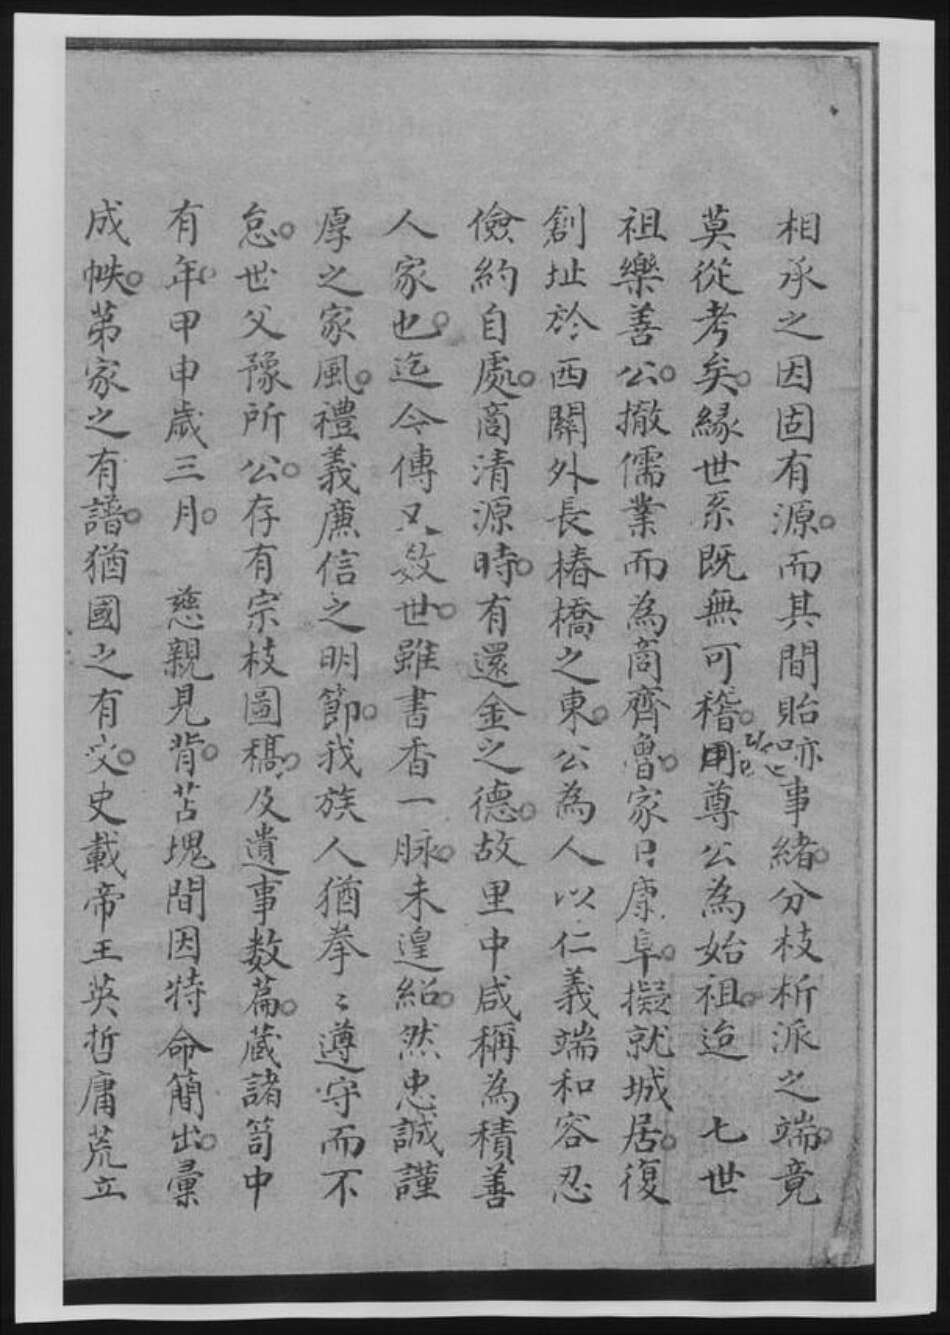 相承之因固有源而其間貽跡事緒分枝析派之端竟
莫從考矣緣世系既無可稽用尊公為始祖迨　七世
祖樂善公撤儒業而為商齊魯家曰康阜擬就城居復
創址於西關外長椿橋之東公為人以仁義端和容忍
儉約自處商清源時有還金之德故里中咸稱為積善
人家也迄今傳又數世雖書香一脉未遑紹然忠誠謹
厚之家風禮義廉信之明節我族人猶拳〻遵守而不
怠世父豫所公存有宗枝圖稿及遺事数篇蔵諸笥中
有年甲申歲三月　慈親見背苫塊間因特命簡出彙
成帙苐家之有譜猶國之有史載帝王英哲庸荒立